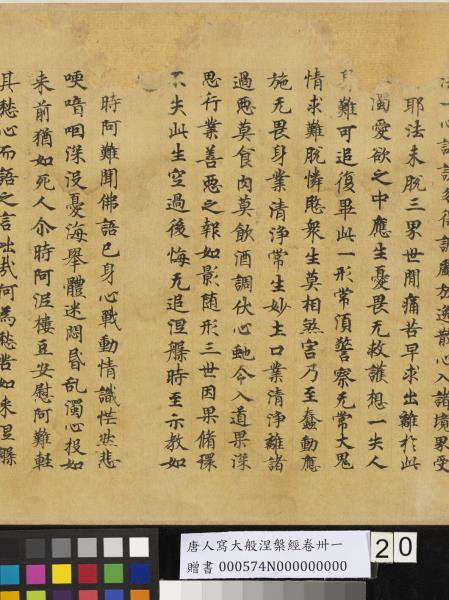 勿逸散心入諸境界受
耶法未脫三界世間痛苦早求出離於此
濁愛欲之中應生憂畏无救護想一失人
身難可追復畢此一形常須警察无常大鬼
情求難脫憐愍衆生莫相煞害乃至蠢動應
施无畏身業清淨常生妙土口業清淨離諸
過惡莫食肉莫飲酒調伏心虵令入道果深
思行業善惡之報如影随形三世因果脩環
不失此生空過後悔无追涅槃時至示教如
時阿難聞佛語已身心戰動情識恾然悲
哽喑咽深沒憂海舉體迷悶昏乱濁心投如
来前猶如死人尒時阿泥樓豆安慰阿難輕
其愁心而語之言咄哉何為愁苦如来涅槃
唐人寫大般涅槃經卷卅一
贈書 000574N000000000
20